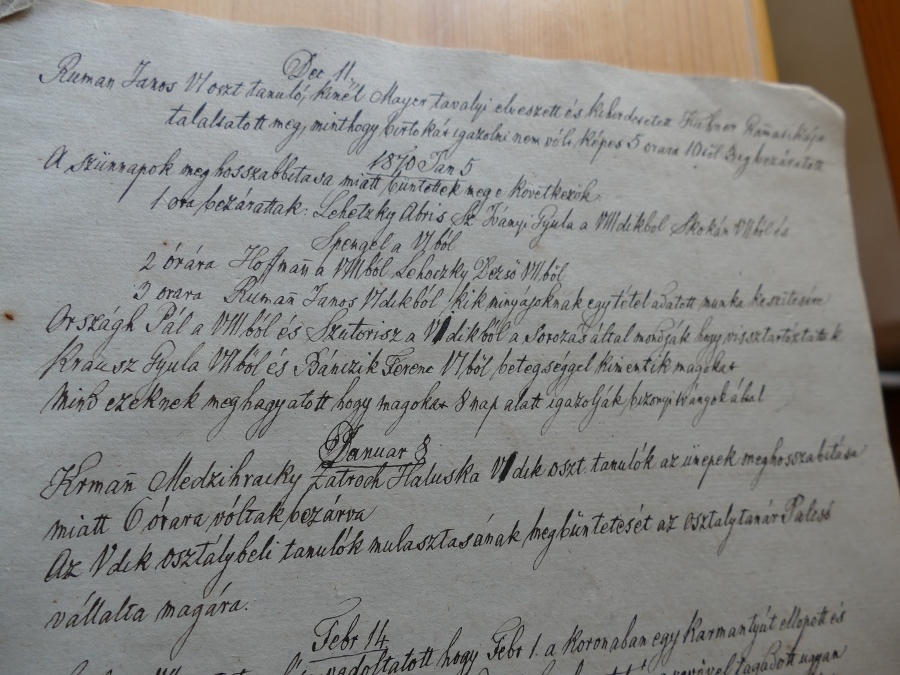 Dec 11.
Ruman Janos VI oszt tanuló, kinél Mayer tavalyi elveszett és
találtatott meg, minthogy birtokát igazolni nem vólt képes 5 orara 10től 3ig bezáratott
1870 Jan 5
A szünnapok meghosszabbitasa miatt büntettek meg e következők
1 ora bezárattak: Lehetzky Abris Sz. Iványi Gyula a VIIIdikbol Skokán VIIből és
Spengel a VIból
2 órára Hoffman̄ a VIIIból Lehoczky Dezső VIIból
3 orara Ruman̄ Janos VIdikból /kik minyájoknak egy tétel adatott munka keszitésére
Országh Pál a VIIIból és Szutorisz a VIdikből a Sorozas által mondják hogy visstartóztattak
Krausz Gyula VIIből és Bánczik Ferenc VIből betegséggel kimentik magokat
Mind ezeknek meghagyatott hogy magokat 8 nap alatt igazolják bizonyitványok által
Januar 8
Krman̄ Medzihracky Zatroch Haluska Vdik oszt. tanulók az ünepek meghosszabitása
miatt 6 órara vóltak bezárva
Az Vdik osztálybeli tanulók mulasztasának megbüntetését az osztalytanár Palcsó
vállalta magára.
Febr 14
vadoltatott hogy Febr 1. a Koronaban egy Karmantyát ellopott és
tagadott ugyan